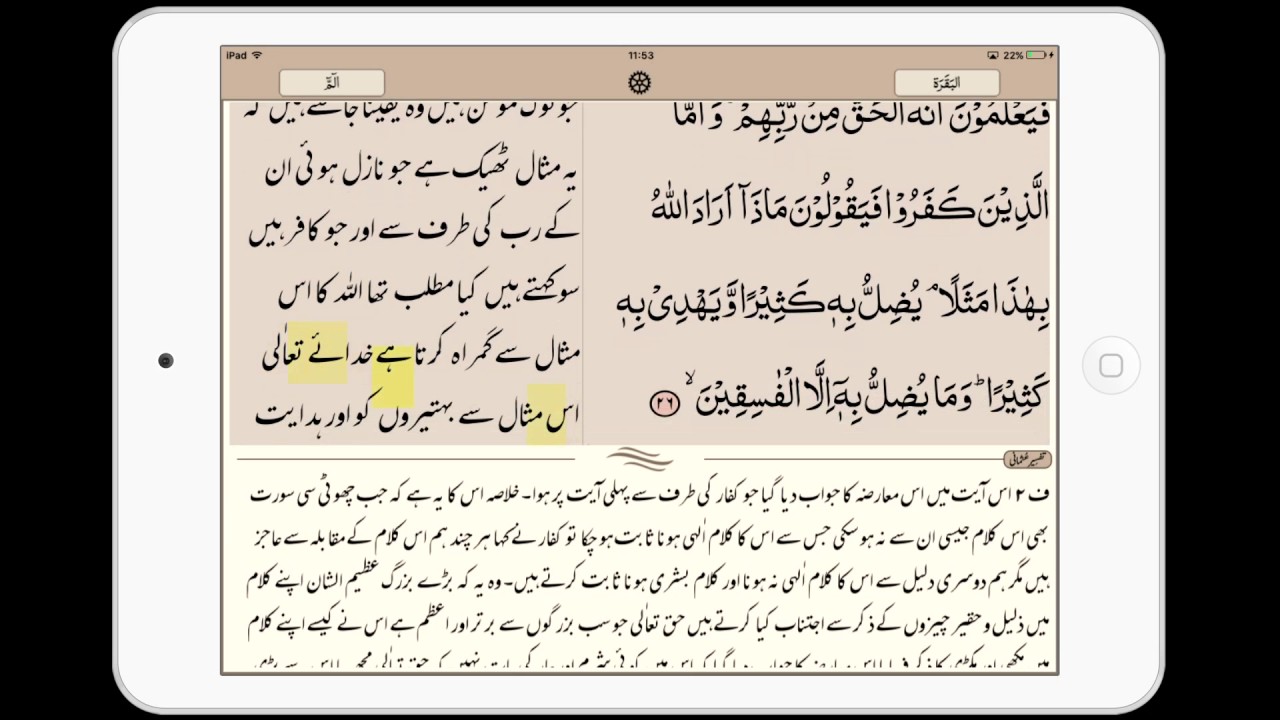 iPad 11:53 22%
الٓمّٓ
البَقَرَة
فَيَعْلَمُوْنَ اَنَّهُ الْحَقُّ مِنْ رَّبِّهِمْ ۚ وَاَمَّا
الَّذِيْنَ كَفَرُوْا فَيَقُوْلُوْنَ مَاذَآ اَرَادَ اللّٰهُ
بِهٰذَا مَثَلًا ۘ يُضِلُّ بِهٖ كَثِيْرًا وَّيَهْدِىْ بِهٖ
كَثِيْرًا ؕ وَمَا يُضِلُّ بِهٖٓ اِلَّا الْفٰسِقِيْنَ ۙ ٢٦
جو لوگ مومن ہیں وہ یقیناً جانتے ہیں کہ
یہ مثال ٹھیک ہے جو نازل ہوئی ان
کے رب کی طرف سے اور جو کافر ہیں
سو کہتے ہیں کیا مطلب تھا اللہ کا اس
مثال سے گمراہ کرتا ہے خدائے تعالٰی
اس مثال سے بہتیروں کو اور ہدایت
تفسیر عثمانی
ف ۲ اس آیت میں اس معارضہ کا جواب دیا گیا جو کفار کی طرف سے پہلی آیت پر ہوا۔ خلاصہ اس کا یہ ہے کہ جب چھوٹی سی سورت
بھی اس کلام جیسی ان سے نہ ہو سکی جس سے اس کا کلام الٰہی ہونا ثابت ہو چکا تو کفار نے کہا ہر چند ہم اس کلام کے مقابلہ سے عاجز
ہیں مگر ہم دوسری دلیل سے اس کا کلام الٰہی نہ ہونا اور کلام بشری ہونا ثابت کرتے ہیں۔ وہ یہ کہ بڑے بزرگ عظیم الشان اپنے کلام
میں ذلیل و حقیر چیزوں کے ذکر سے اجتناب کیا کرتے ہیں حق تعالٰی جو سب بزرگوں سے برتر اور اعظم ہے اس نے کیسے اپنے کلام